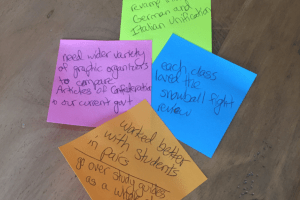 revamp
German and
Italian Unification
need wider variety
of graphic organizers
to compare
Articles of Confederation
to our current gov't
each class
loved the
snowball fight
review
worked better
with students
in pairs
go over study guides
as a whole